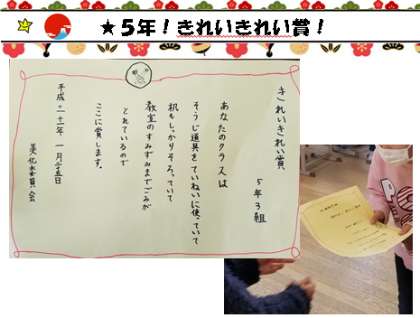 ★5年！きれいきれい賞！
きれいきれい賞
5年3組
あなたのクラスは
そうじ道具をていねいに使っていて
机もしっかりそろっていて
教室のすみずみまでごみが
とれているので
ここに賞します。
美化委員会